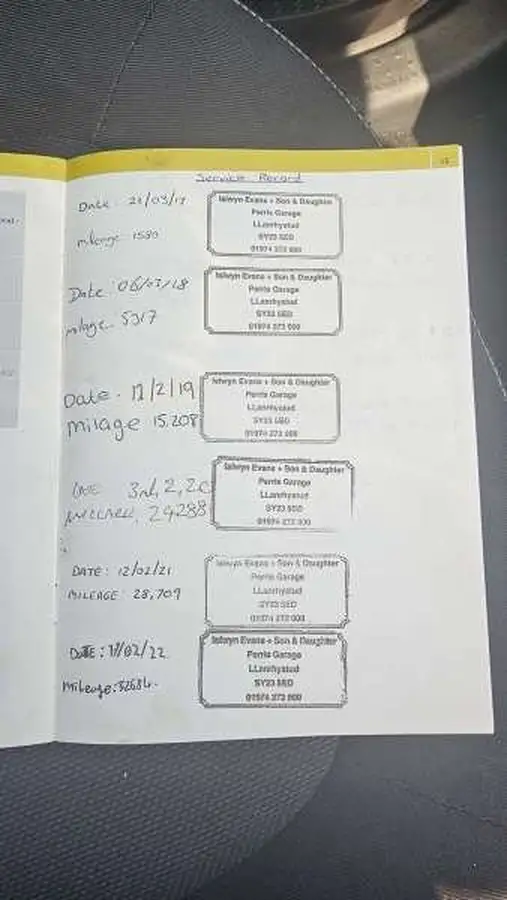 Service Record
Date 21/03/17
mileage 1580
Islwyn Evans + Son & Daughter
Perris Garage
LLanrhystud
SY23 5ED
01974 272 900
Date 06/03/18
milage 5317
Islwyn Evans + Son & Daughter
Perris Garage
LLanrhystud
SY23 5ED
01974 272 900
Date . 12/2/19
Milage 15.208
Islwyn Evans + Son & Daughter
Perris Garage
LLanrhystud
SY23 5ED
01974 272 900
3rd, 2, 20
24288
Islwyn Evans + Son & Daughter
Perris Garage
LLanrhystud
SY23 5ED
01974 272 900
DATE: 12/02/21
MILEAGE: 28,709
Islwyn Evans + Son & Daughter
Perris Garage
LLanrhystud
SY23 5ED
01974 272 900
DATE: 17/02/22
Mileage: 32684.
Islwyn Evans + Son & Daughter
Perris Garage
LLanrhystud
SY23 5ED
01974 272 900